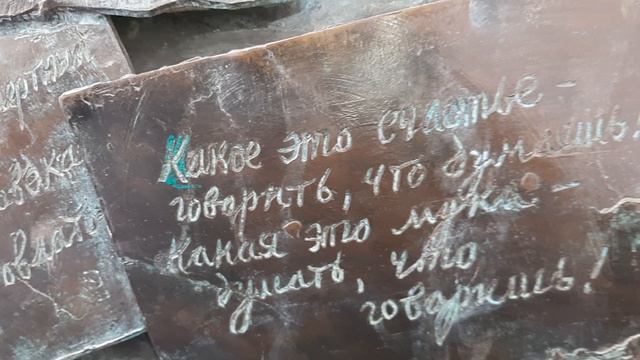 Какое это счастье -
говорить, что думаешь.
Какая это мука -
думать, что
говоришь!